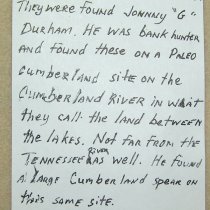 They were found Johnny "G"
Durham. He was bank hunter
and found these on a Paleo
Cumberland site on the
Cumberland River in what
they call the land between
the lakes. Not far from the
Tennessee River as well. He found
a large Cumberland spear on
this same site.